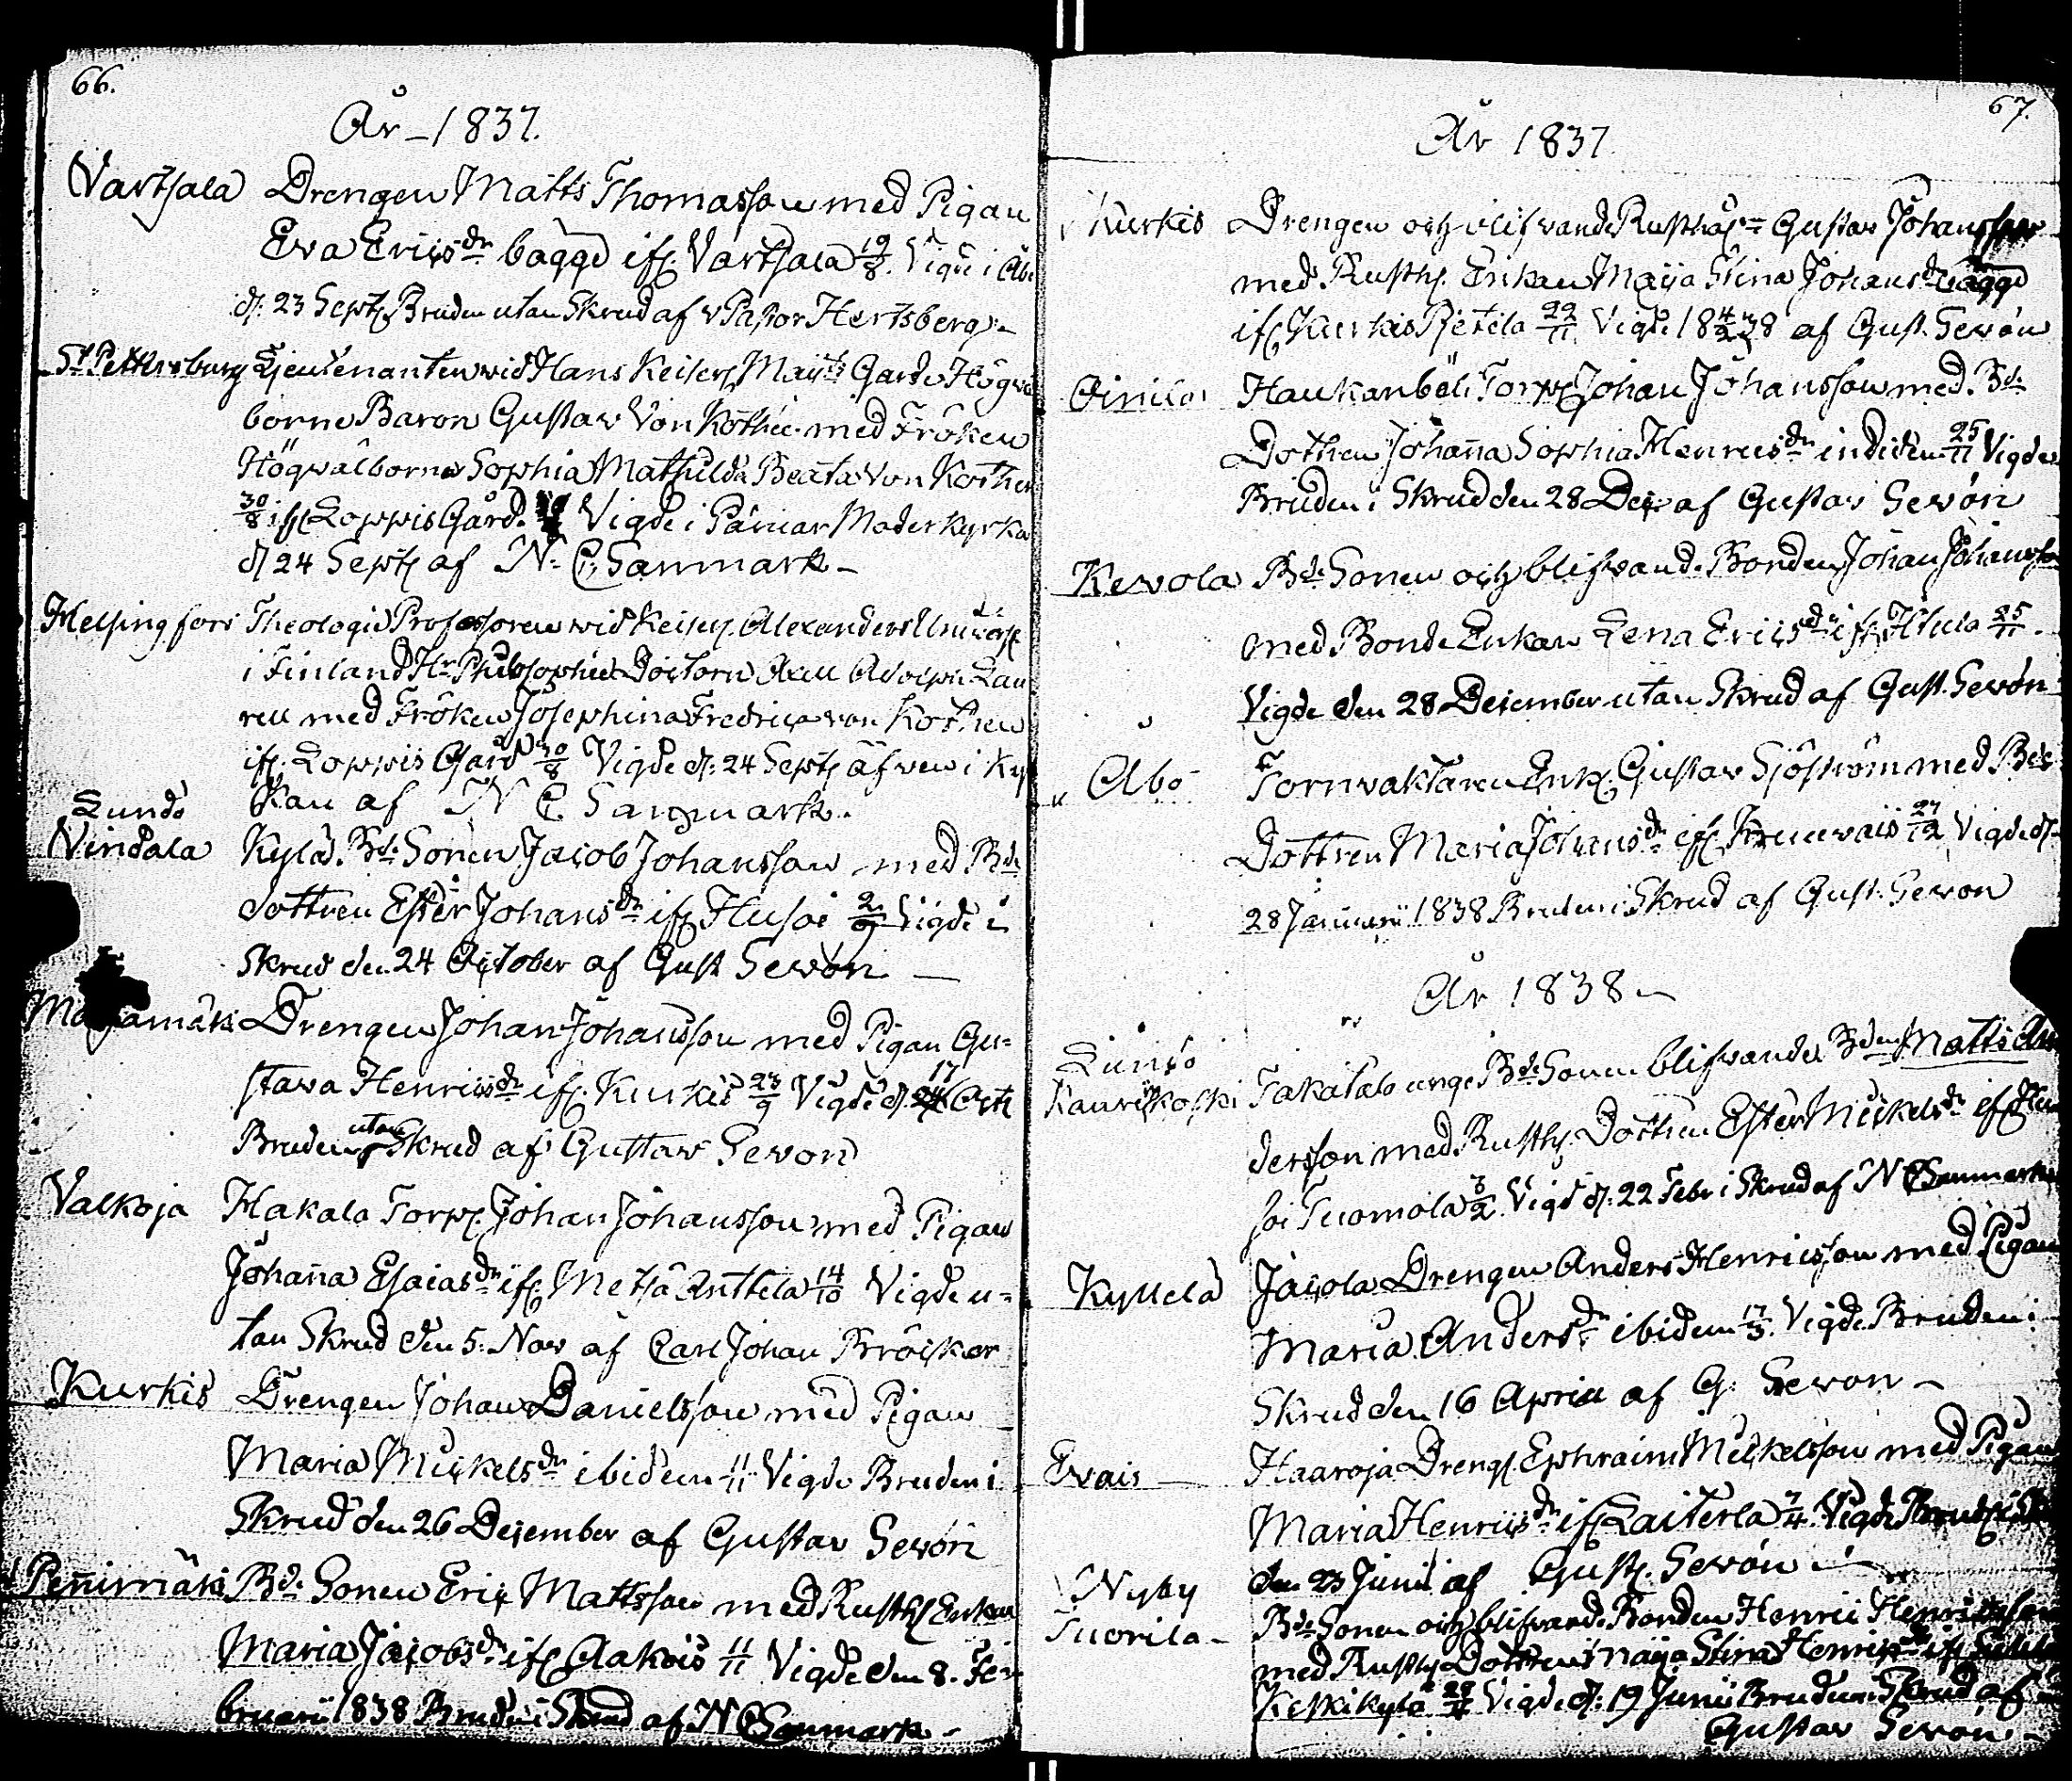 66.
År 1837.
Vartsala Drengen Matts Thomasson med Pigan
Eva Ericsdr bägge ifr Vartsala 19/8. Vigde i Åbo
d. 23 Sept. Bruden utan Skrud af vPastor Hertsberg
St Pettersburg Lieutenanten vid Hans Keiserl Maijts Garde Högväl
borne Baron Gustav Von Kothen med Fröken
Högvälborna Sophia Mathilda Beata Von Kothen
30/8 ifr Loppis Gård. Vigde i Pämar Moderkyrka
d 24 Sept af N. C. Sanmark
Helsingfors Theologie Professoren vid Keiserl. Alexanders Univers
i Finland Hr Philosophie Doctorn Axell Adolph Lau
rell med Fröken Josephina Fredrica von Kothen
ifr. Loppis Gård 30/8 Vigde d. 24 Sept äfven i Kyr
kan af N C Sanmark.
Lundo
Vindala Kylä Bde Sonen Jacob Johansson med Bde
dottren Ester Johansdr ifr Husoi 2/9 Vigde i
Skrud den 24 October af Gust Sevón
Drengen Johan Johansson med Pigan Gu=
stava Henricsdr ifr. Kurkis 23/9 Vigde d. 17 Octr
Bruden utan Skrud af Gustav Sevon
Valkoja Hakala Torp. Johan Johansson med Pigan
Johanna Esaiasdr ifr. Metsä Anttila 14/10 Vigde u=
tan Skrud den 5. Nov af Carl Johan Bröcker
Kurkis Drengen Johan Danielsson med Pigan
Maria Mickelsdr ibidem 11/11 Vigde Bruden i
Skrud den 26 December af Gustav Sevón
Pennimäki Bde Sonen Eric Mattsson med Rusth Enkan
Maria Jacobsdr ifr Aakois 11/11 Vigde den 8. Fe
bruarii 1838 Bruden i Skrud af N C Sanmark
67.
År 1837
Kurkis Drengen och blifvande Rusth Gustav Johansson
med Rusth. Enkan Maija Stina Johansdr bägge
ifr Kurkis Pietila 22/11. Vigde 18 4/2 38 af Gust. Sevón
Oinila Haukanböle Torp Johan Johansson med Bde
Dottren Johanna Sophia Henricsdr ibidem 25/11 Vigde
Bruden i Skrud den 28 Dec af Gustav Sevón
Kevola Bde Sonen och blifvande Bonden Johan Johansson
med Bonde Enkan Lena Ericsdr ifr 25/11.
Vigde den 28 December utan Skrud af Gust. Sevón
Åbo Tornvaktaren Enkl. Gustav Sjöström med Bde
Dottren Maria Johansdr ifr 27/12 Vigde d
28 Januarii 1838 Bruden i Skrud af Gust. Sevon
År 1838
Lundo
Kaurikoski Takatalo unge Bde Sonen blifvande Bden Matts An
dersson med Rusth. Dottren Ester Mickelsdr ifr Hu
soi Tuomola 3/2 Vigd d. 22 Febr i Skrud af N C Sanmark
Kyllelä Jacola Drengen Anders Henricsson med Pigan
Maria Andersdr ibidem 17/3. Vigde Bruden i
Skrud den 16 Aprill af G. Sevon
Evais Haaroja Dreng. Ephraim Mickelsson med Pigan
Maria Henricsdr ifr Laiterla 7/4 Vigde
den 23 Junii af Gust. Sevón
Nyby
Tuorila Bde Sonen och blifvande Bonden Henric Henricsson
med Rusth Dottren Maija Stina Henricsdr ifr
Keskikylä Vigde d. 19 Junii Bruden i Skrud af
Gustav Sevón